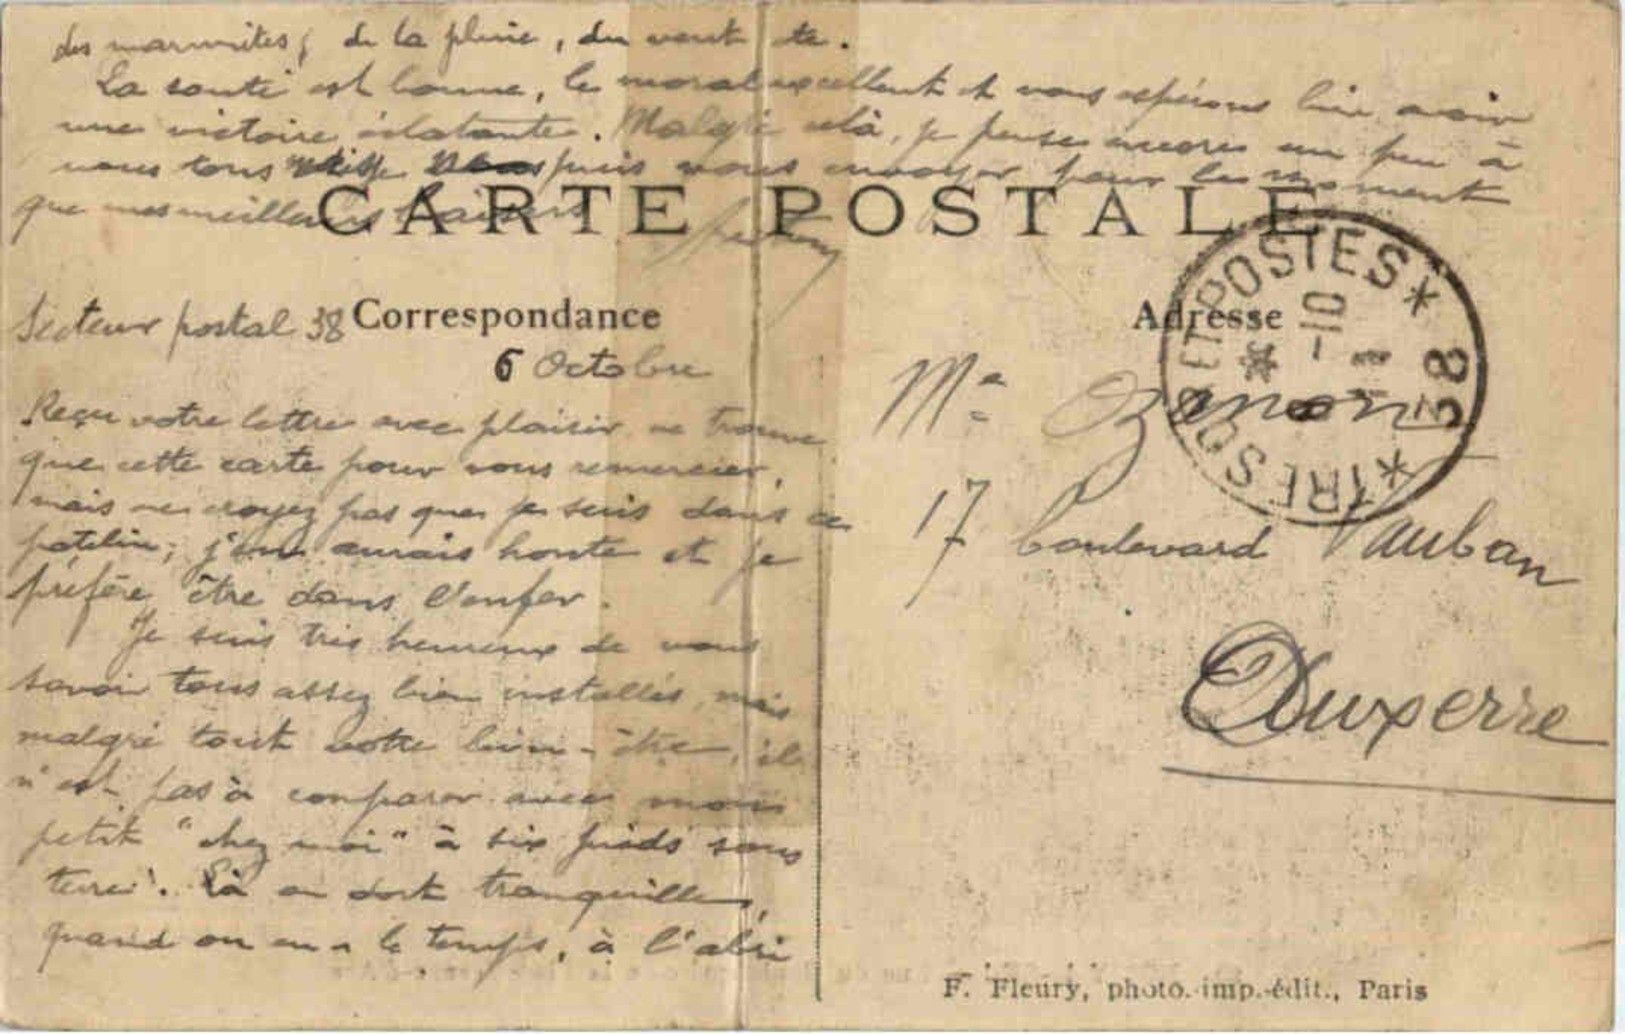 des marmites, de la pluie, du vent etc.
La santé est bonne, le moral excellent et nous espérons bien avoir
une victoire éclatante. Malgré cela, je pense encore un peu à
vous tous puis vous envoyer pour le moment
que mes meilleurs baisers
CARTE POSTALE
Secteur postal 38
Correspondance
6 Octobre
Reçu votre lettre avec plaisir, ne trouve
que cette carte pour vous remercier,
mais ne croyez pas que je suis dans ce
patelin; j'en aurais honte et je
préfère être dans l'enfer.
Je suis très heureux de vous
savoir tous assez bien installés, mais
malgré tout votre bien-être, il
n'est pas à comparer avec mon
petit "chez moi" à six pieds sous
terre. Là on dort tranquille,
quand on en a le temps, à l'abri
Adresse
TRESOR ET POSTES
38
-10
Me
17 boulevard Vauban
Auxerre
F. Fleury, photo.-imp.-édit., Paris